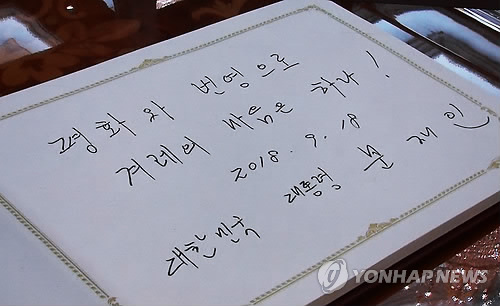 평화와 번영으로
겨레의 마음은 하나!
2018. 9. 18
대한민국 대통령 문재인
YONHAP NEWS